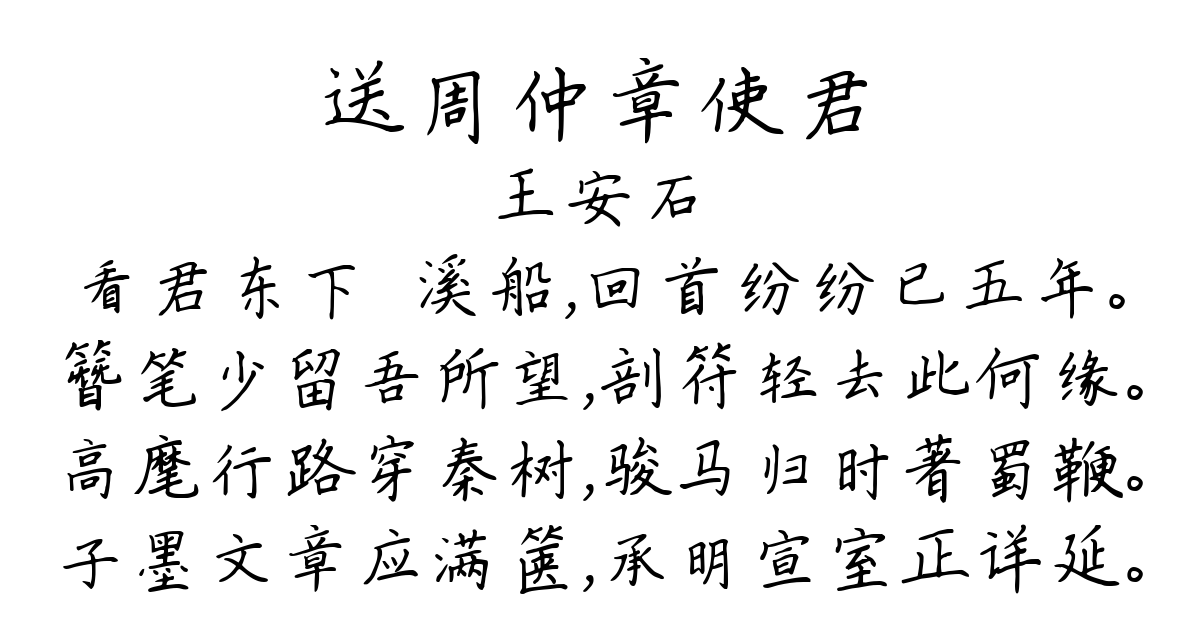 送周仲章使君
王安石
看君东下 溪船,回首纷纷已五年。
簪笔少留吾所望,剖符轻去此何缘。
高麾行路穿秦树,骏马归时著蜀鞭。
子墨文章应满箧,承明宣室正详延。